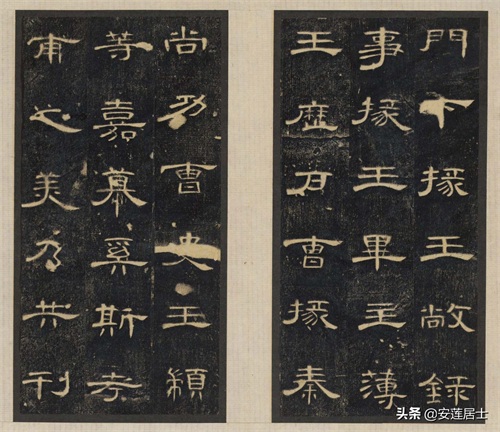 門下掾王敞錄
事掾王畢主薄
王歷戶曹掾秦
尚功曹史王顓
等嘉慕奚斯考
甫之美乃共刊
头条 @安莲居士